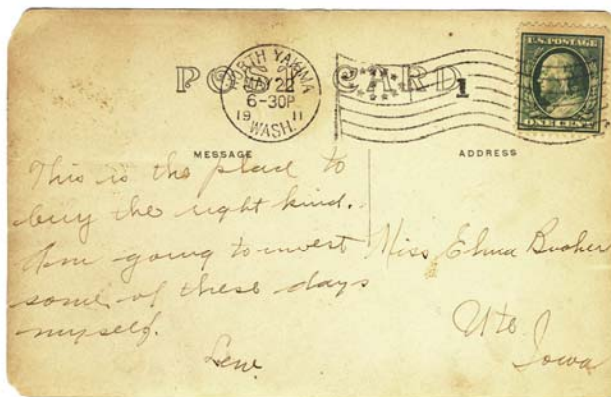 POST CARD
NORTH YAKIMA
MAY 22
6-30P
1911
WASH.
1
U.S. POSTAGE
ONE CENT
MESSAGE
This is the place to
buy the right kind.
Am going to invest
some of these days
myself.
Lew.
ADDRESS
Miss Elma Booher
Ute
Iowa